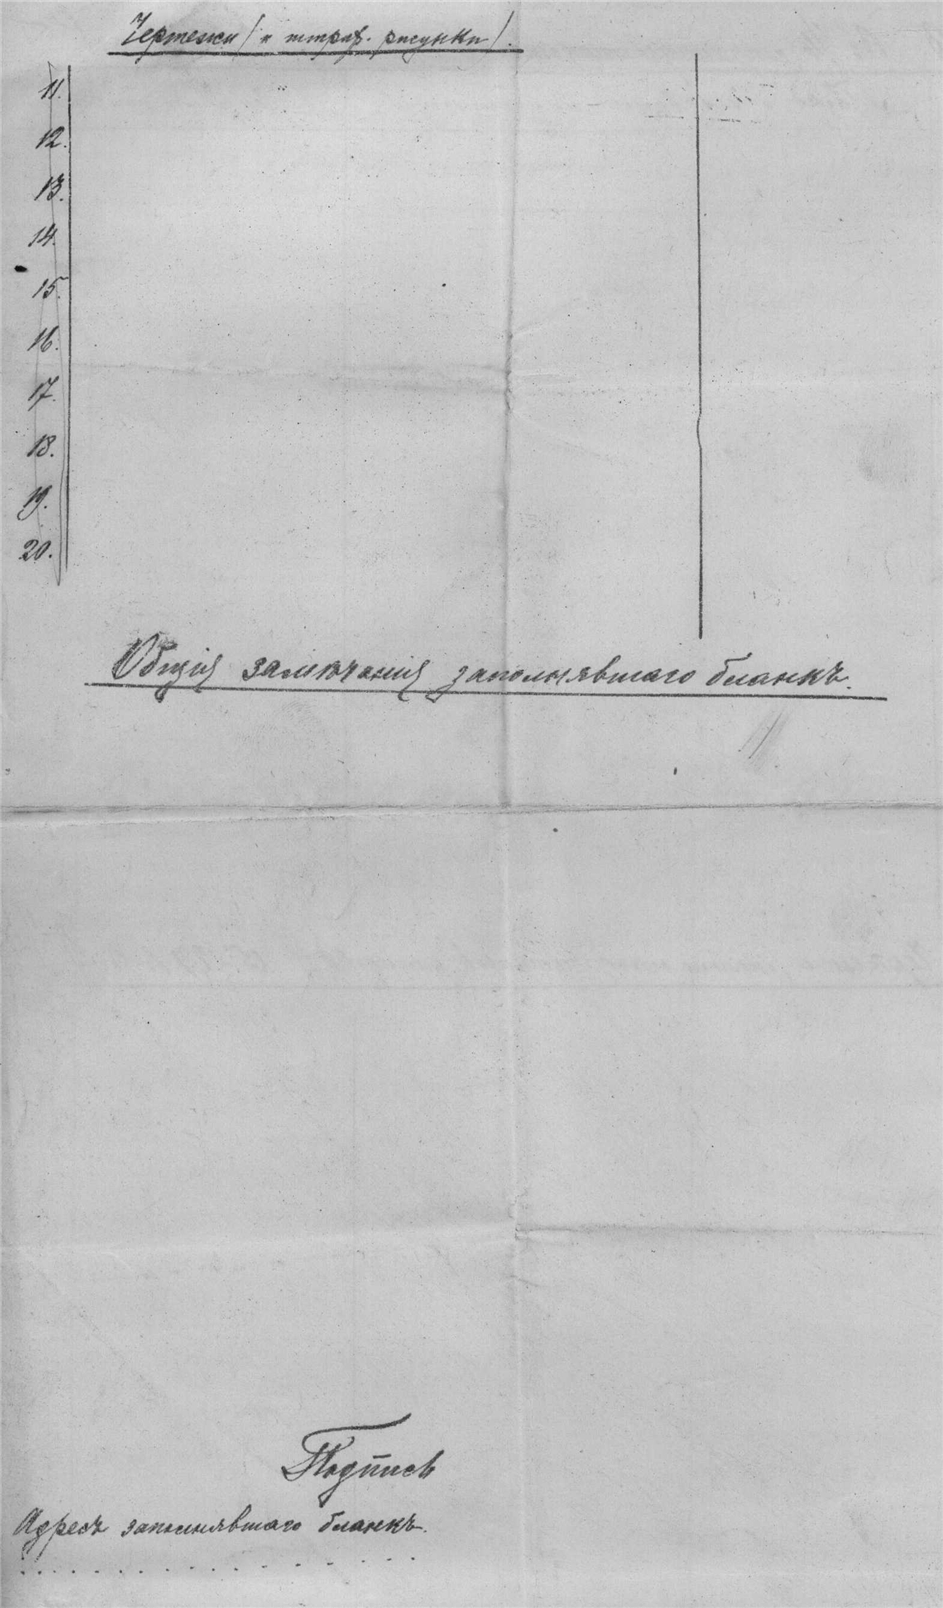 Чертежи (и штриф. рисунки).
11.
12.
13.
14.
15.
16.
17.
18.
19.
20.
Общія замѣчанія заполнявшаго бланкъ.
Подпись
Адресъ заполнявшаго бланкъ.